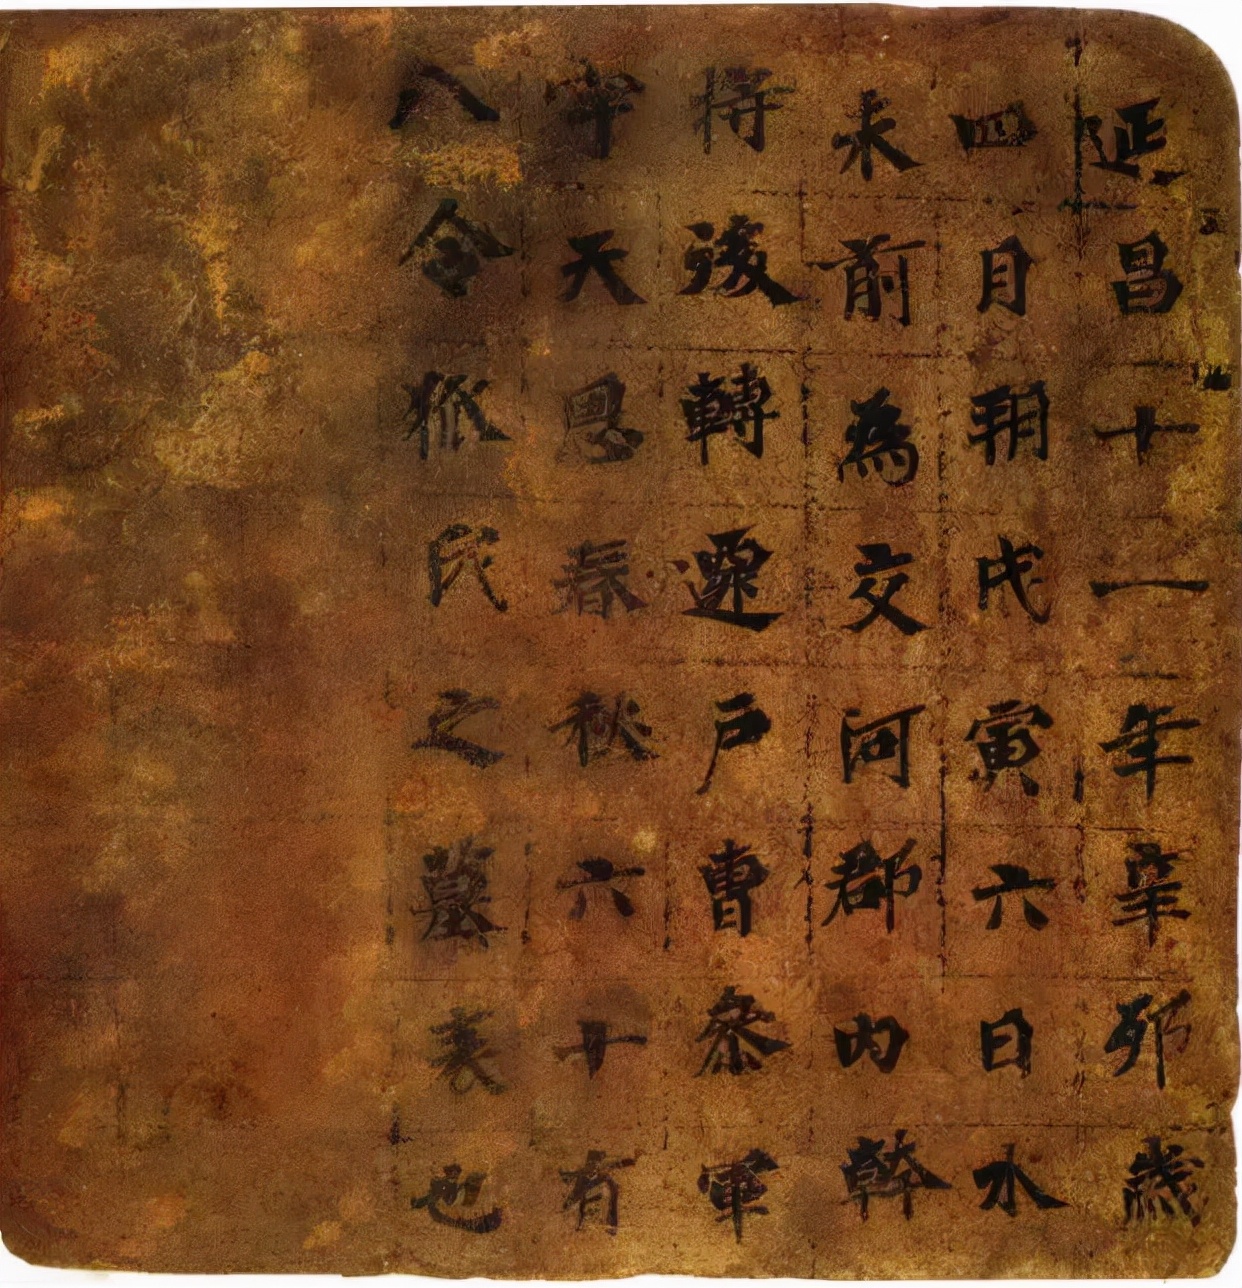 延昌十一年辛卯歲
四月朔戊寅六日水
未前為交河郡内幹
将後轉遷戶曹參軍
字天恩春秋六十有
八令狐氏之墓表也